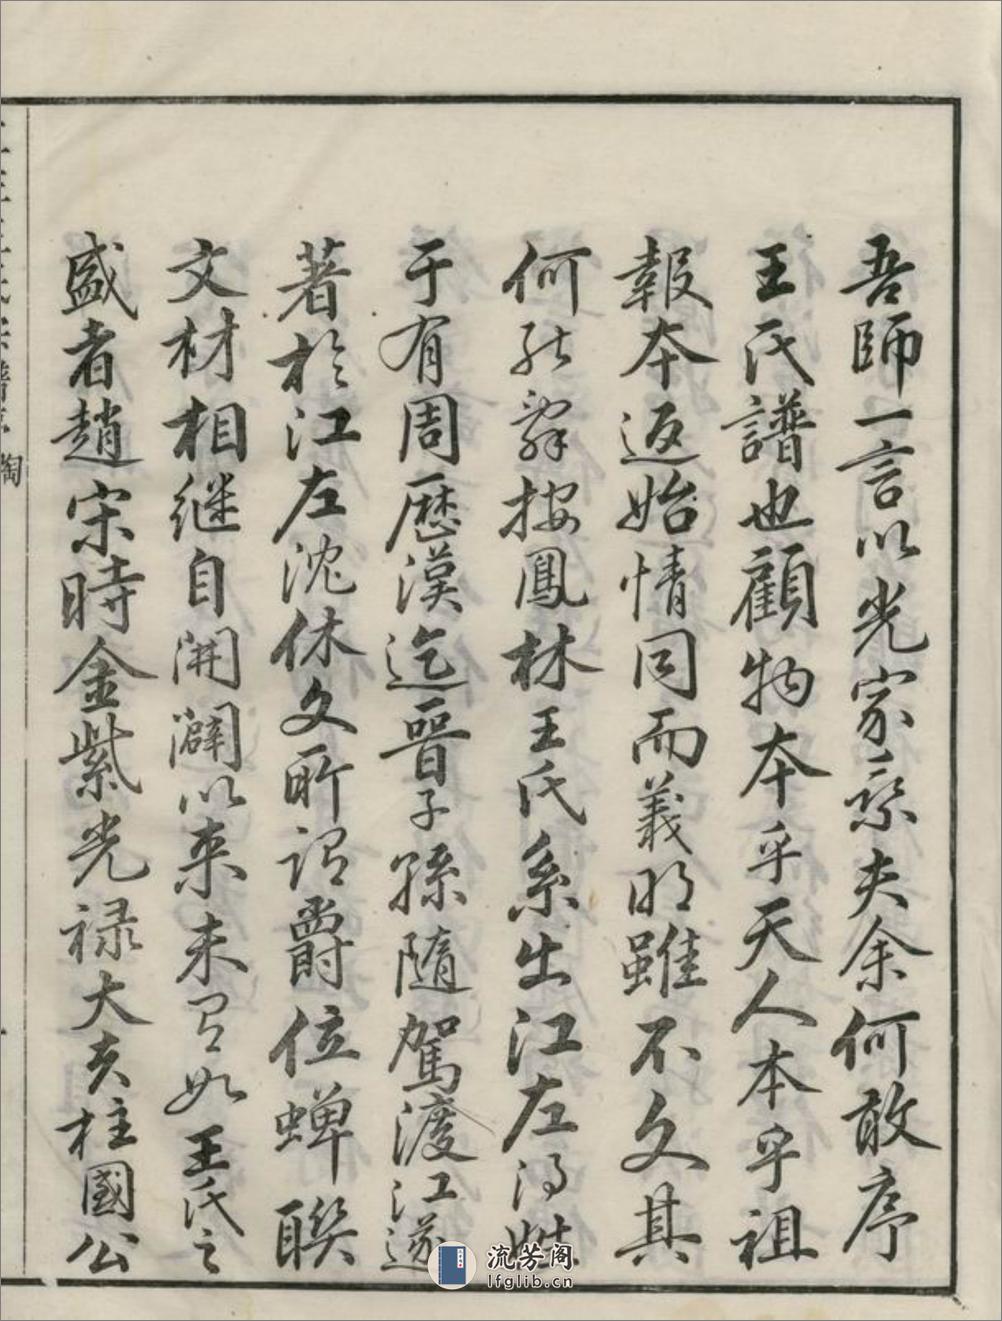 吾師一言以光家乘夫余何敢序
王氏譜也顧物本乎天人本乎祖
報本返始情同而義明雖不文其
何能辭按鳳林王氏系出江左得姓
于有周歷漢迄晉子孫隨駕渡江遂
著於江左沈休文所謂爵位蟬聯
文材相継自開闢以來未有如王氏之
盛者趙宋時金紫光禄大夫柱國公
陶
流芳阁
lfglib.cn